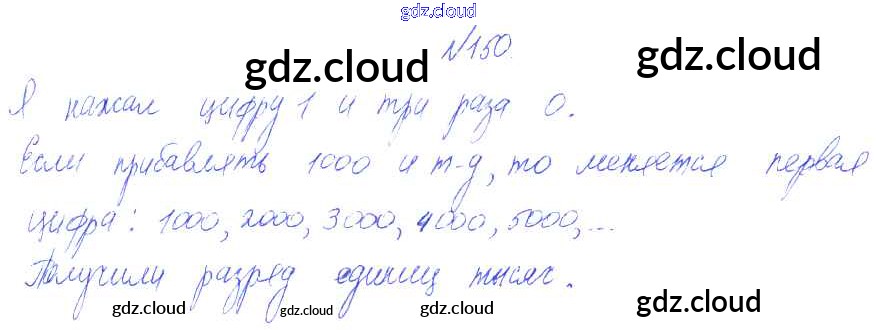 gdz.cloud
№150.
gdz.cloud gdz.cloud
Я нажал цифру 1 и три раза 0.
Если прибавлять 1000 и т-д, то меняется первая
цифра: 1000, 2000, 3000, 4000, 5000, ...
Получили разряд единиц тысяч.
gdz.cloud gdz.cloud gdz.cloud gdz.cloud